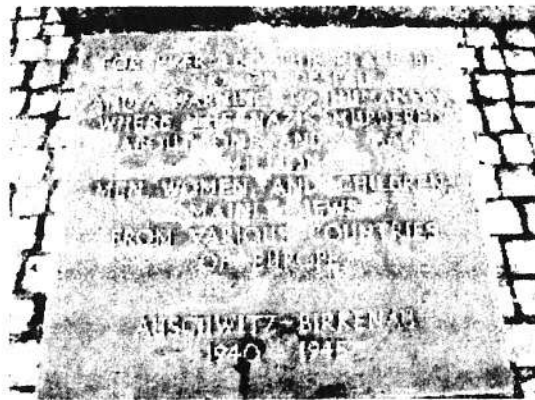 FOR EVER LET THIS PLACE BE
A CRY OF DESPAIR
AND A WARNING TO HUMANITY
WHERE THE NAZIS MURDERED
ABOUT ONE AND A HALF
MILLION
MEN, WOMEN, AND CHILDREN,
MAINLY JEWS
FROM VARIOUS COUNTRIES
OF EUROPE
AUSCHWITZ-BIRKENAU
1940 - 1945